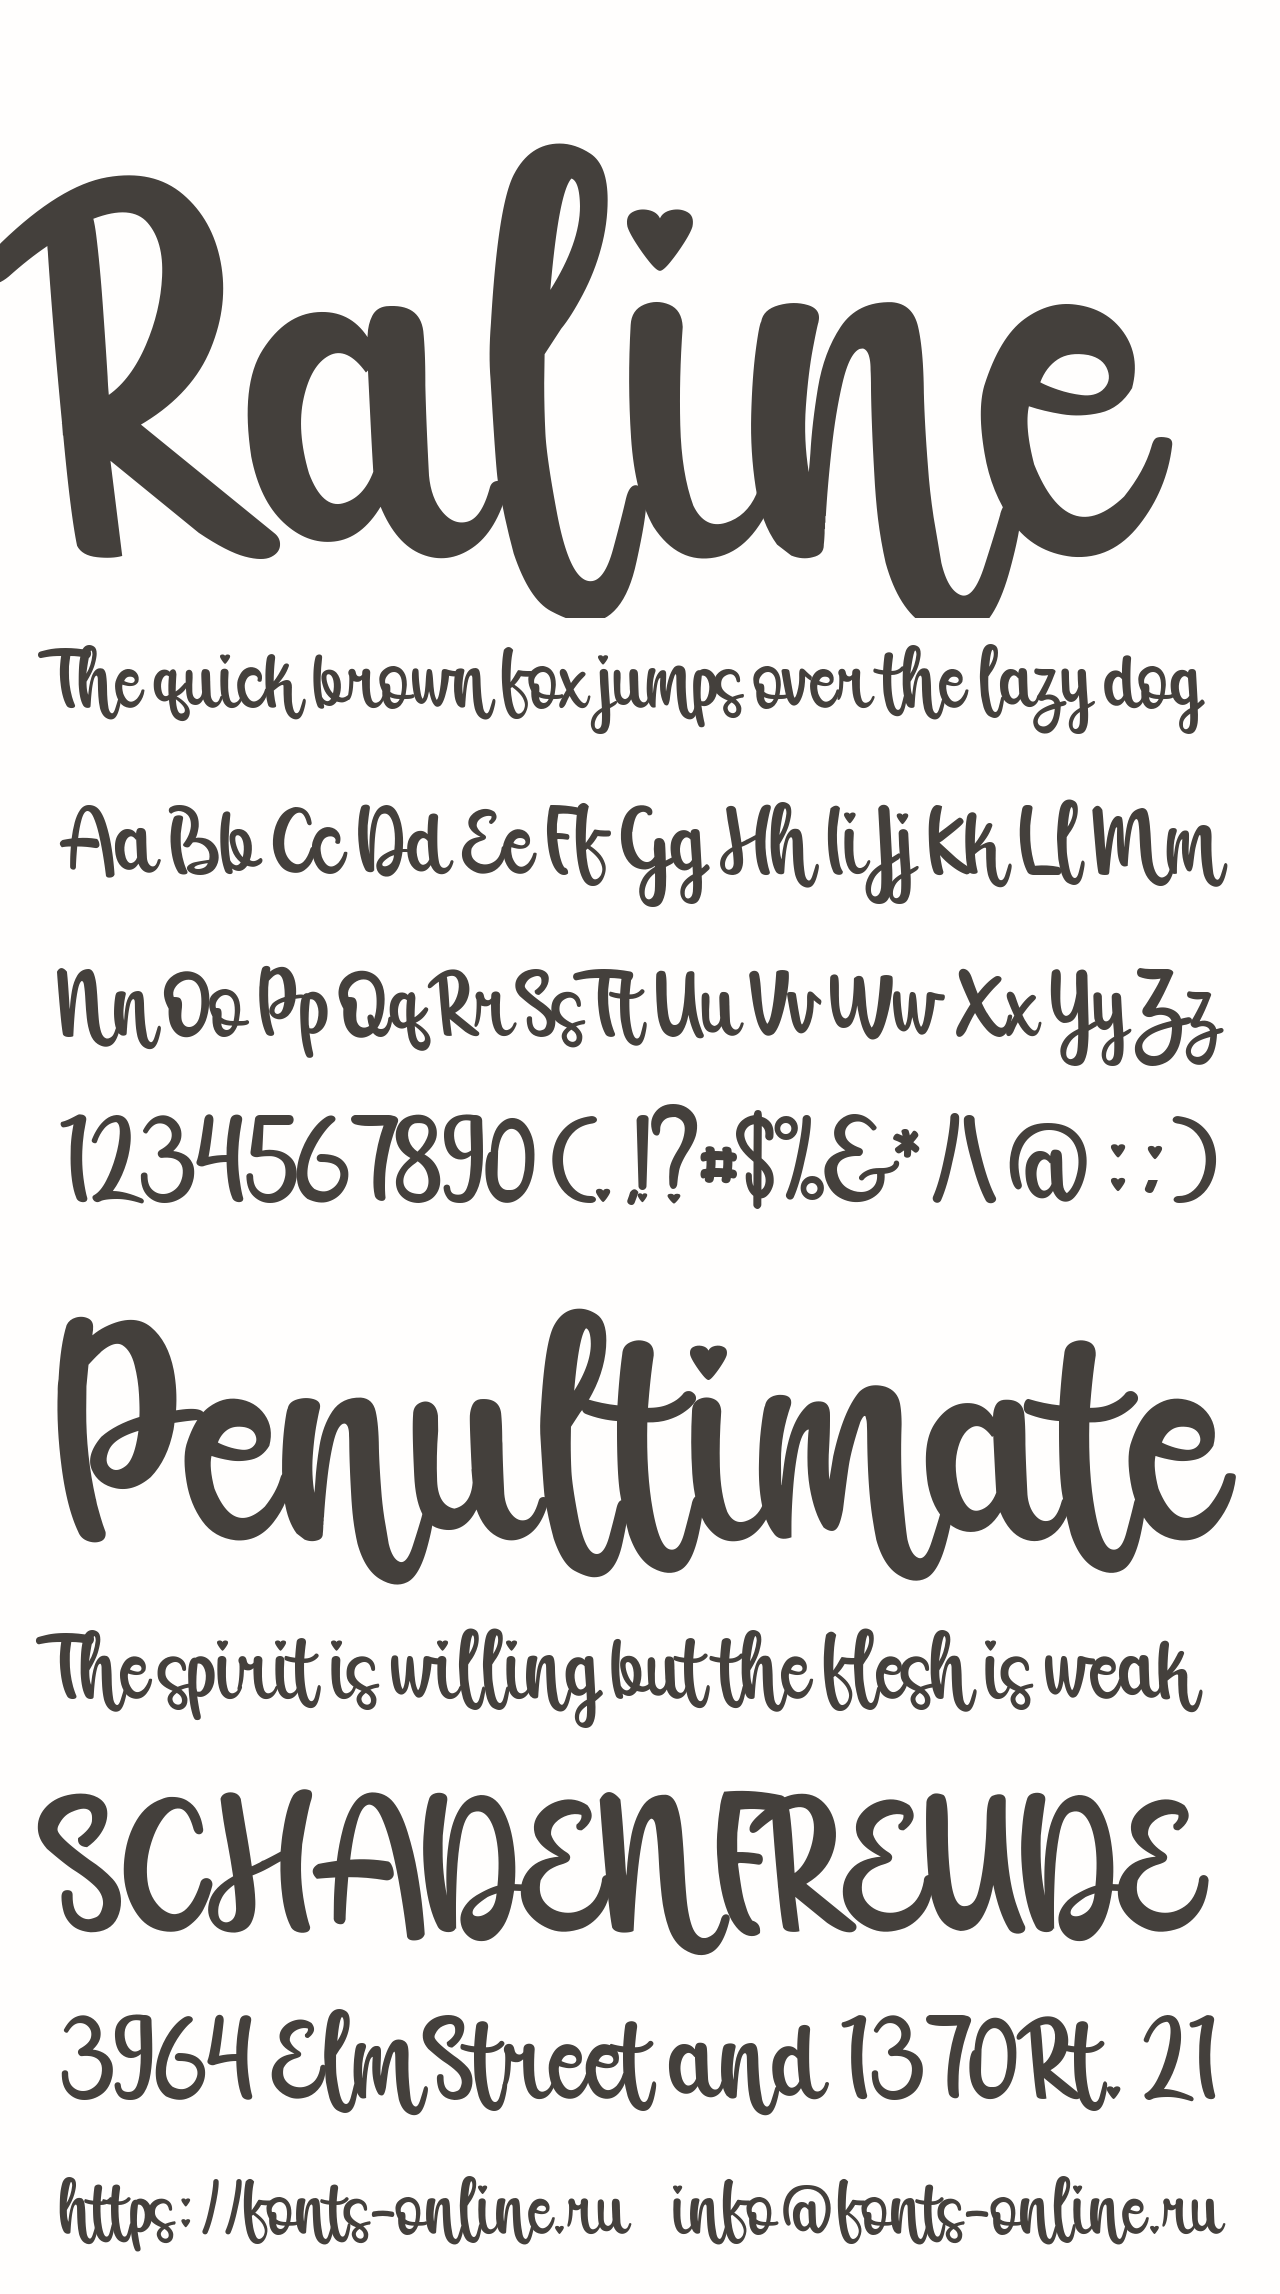 Raline
The quick brown fox jumps over the lazy dog
Aa Bb Cc Dd Ee Ff Gg Hh Ii Jj Kk Ll Mm
Nn Oo Pp Qq Rr Ss Tt Uu Vv Ww Xx Yy Zz
1234567890 (.,!?#$%&* /\ @ : ; )
Penultimate
The spirit is willing but the flesh is weak
SCHADENFREUDE
3964 Elm Street and 1370 Rt. 21
https://fonts-online.ru info@fonts-online.ru